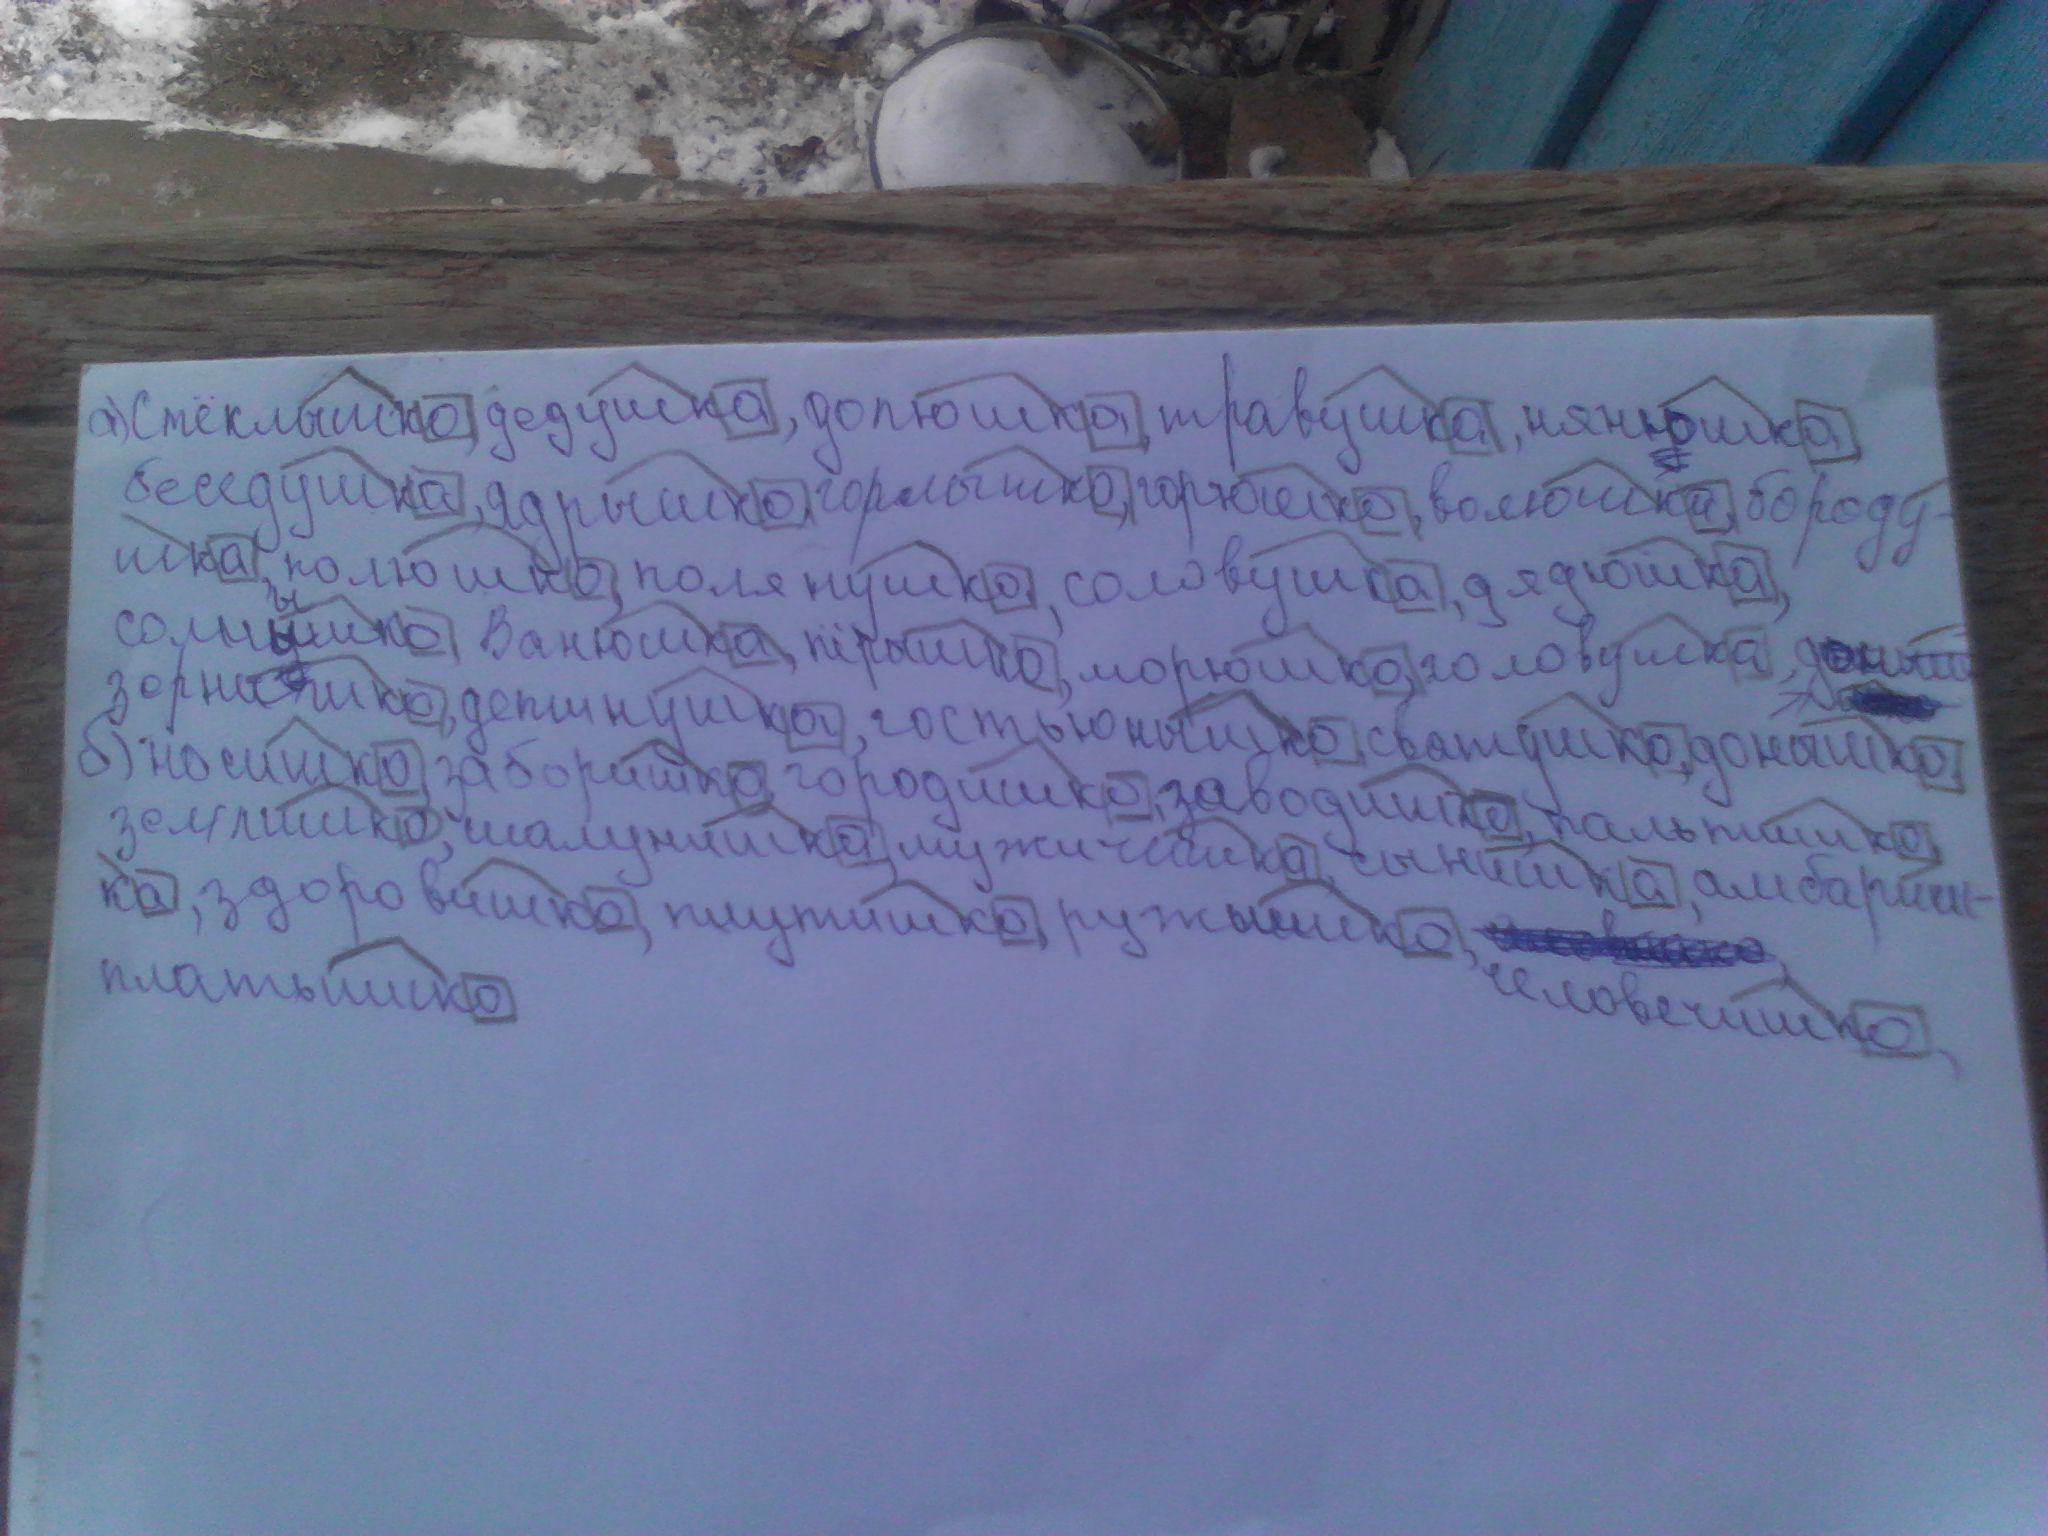 а) Стёклышко, дедушка, допюшка, травушка, нянюшка,
беседушка, ядрышко, горлышко, горюшко, волюшка, бороду-
шка, полюшко, полянушка, соловушка, дядюшка,
солнышко, Ванюшка, пёрышко, морюшко, головушка,
зёрнышко, детинушка, гостьюнышко, сватушко, донышко
б) носишко, заборишко, городишко, заводишко, пальтишко,
землишко, шалунишка, мужичишка, сынишка, амбариш-
ка, здоровишко, плутишко, ружьишко,
человечишко,
платьишко